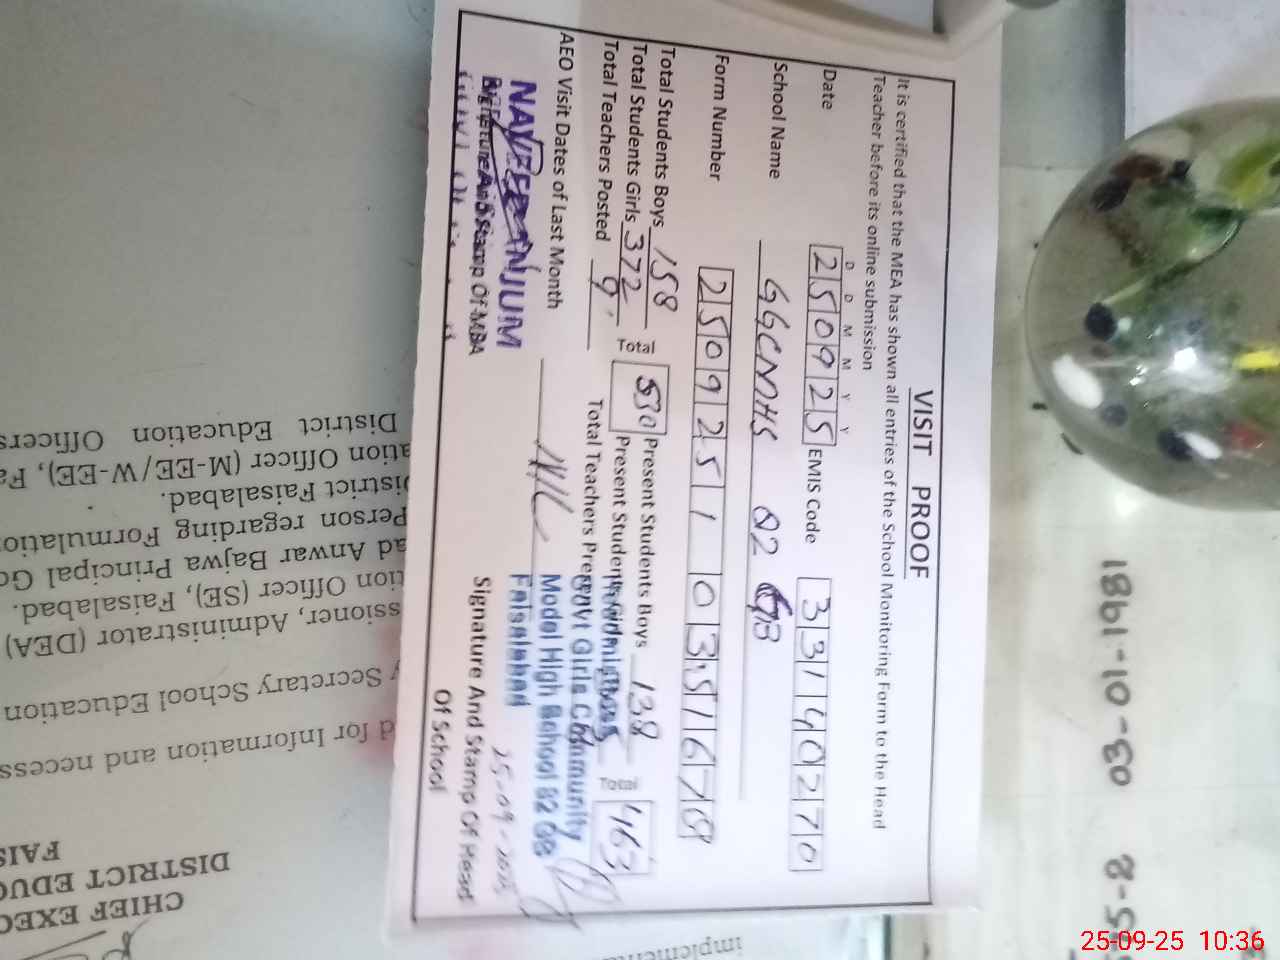 VISIT PROOF
It is certified that the MEA has shown all entries of the School Monitoring Form to the Head
Teacher before its online submission
D D M M Y Y
Date 250925 EMIS Code 33140270
School Name GGCMHS 82 GB
Form Number 2509251 03516769
Total Students Boys 158 Total 530 Present Students Boys 138 Total 463
Total Students Girls 372 Present Students Girls
Total Teachers Posted 9 Total Teachers Present
AEO Visit Dates of Last Month Nil
NAVEED ANJUM
Signature And Stamp Of MEA
Govt Girls Community
Model High School 82 GB
Faisalabad
25-09-2025
Signature And Stamp Of Head
Of School
District Education Officers
ation Officer (M-EE/W-EE), Fa
District Faisalabad.
Person regarding Formulatio
ad Anwar Bajwa Principal Go
tion Officer (SE), Faisalabad.
ssioner, Administrator (DEA)
y Secretary School Education
d for Information and necess
CHIEF EXEC
DISTRICT EDUC
FAIS
implemen
03-10-1981
25-09-25 10:36